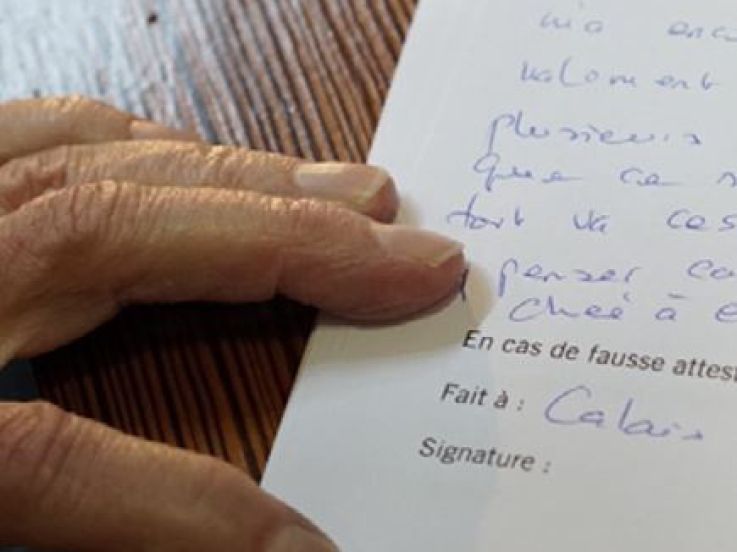 valoment
plusieurs
que ce
tort va ces
penser co
En cas de fausse attest
Fait à : Calais
Signature :